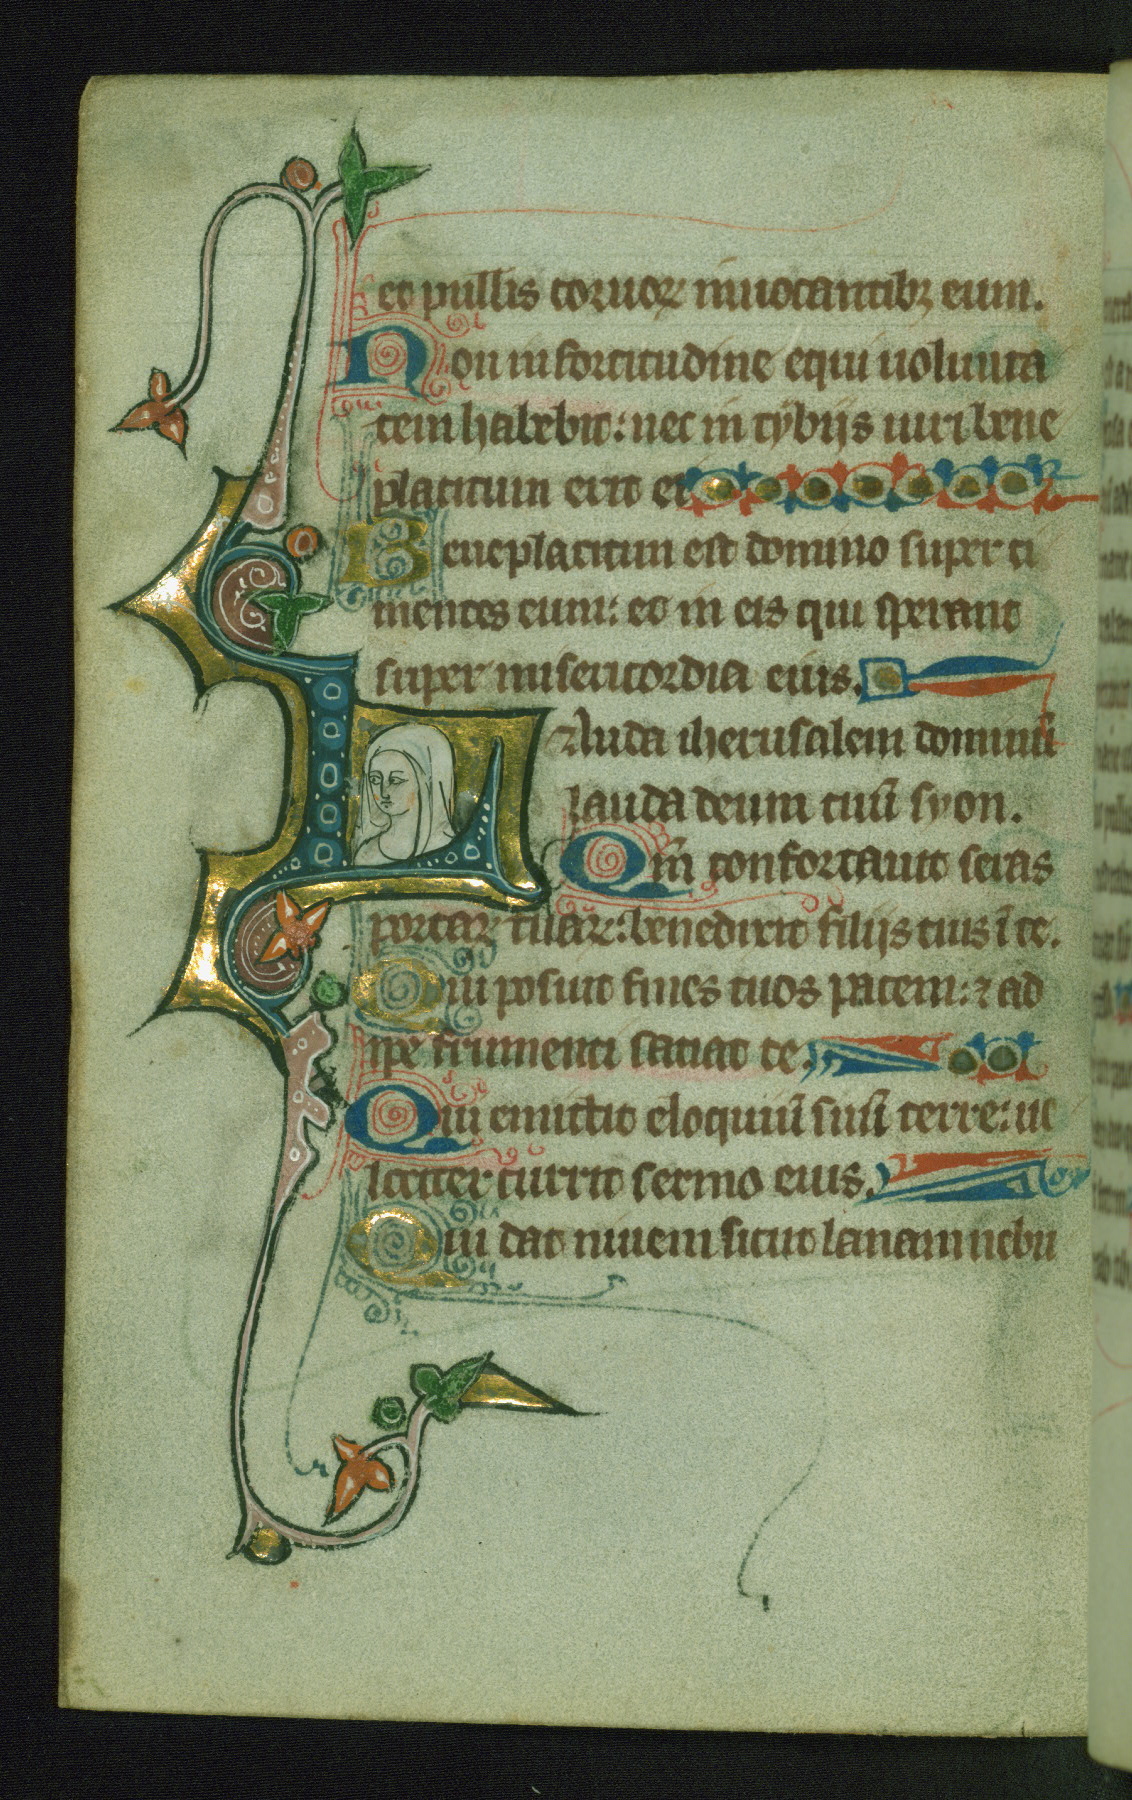 et pullis coruoꝝ inuocantibꝫ eum.
Non in fortitudine equi uolunta
tem habebit: nec in tybijs uiri bene
placitum erit ei
Beneplacitum est domino super ti
mentes eum: et in eis qui sperant
super misericordia eius.
Lauda iherusalem dominū
lauda deum tuū syon.
Qm̄ confortauit seras
portaꝝ tuaꝝ: benedixit filijs tuis ī te.
Qui posuit fines tuos pacem: ⁊ ad
ipe frumenti satiat te.
Qui emittit eloquiū suū terre: ue
lociter currit sermo eius.
Qui dat niuem sicut lanam nebu